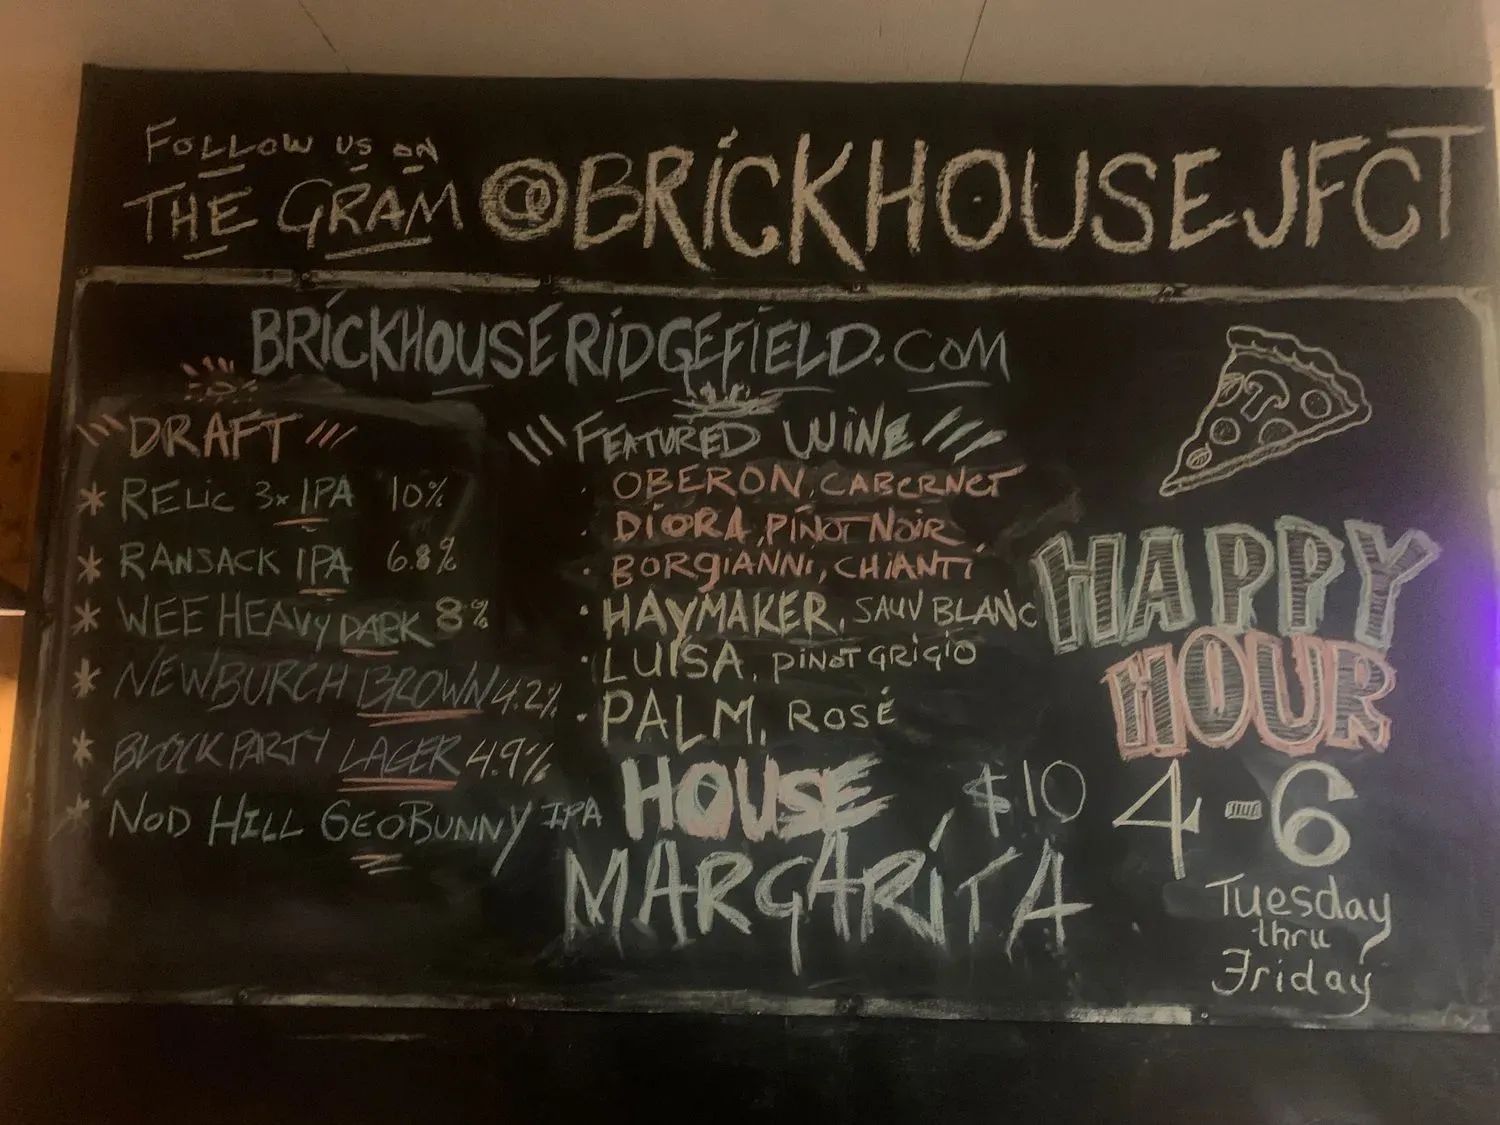 FOLLOW US ON
THE GRAM @BRICKHOUSEJFCT
BRICKHOUSERIDGEFIELD.COM
DRAFT
* RELIC 3x IPA 10%
* RANSACK IPA 6.8%
* WEE HEAVY DARK 8%
* NEWBURCH BROWN 4.2%
* BLOCK PARTY LAGER 4.9%
* NOD HILL GEOBUNNY IPA
FEATURED WINE
· OBERON, CABERNET
· DIORA, PINOT NOIR,
· BORGIANNI, CHIANTI
· HAYMAKER, SAUV BLANC
· LUISA, PINOT GRIGIO
· PALM, ROSÉ
HOUSE $10
MARGARITA
HAPPY
HOUR
4-6
Tuesday
thru
Friday